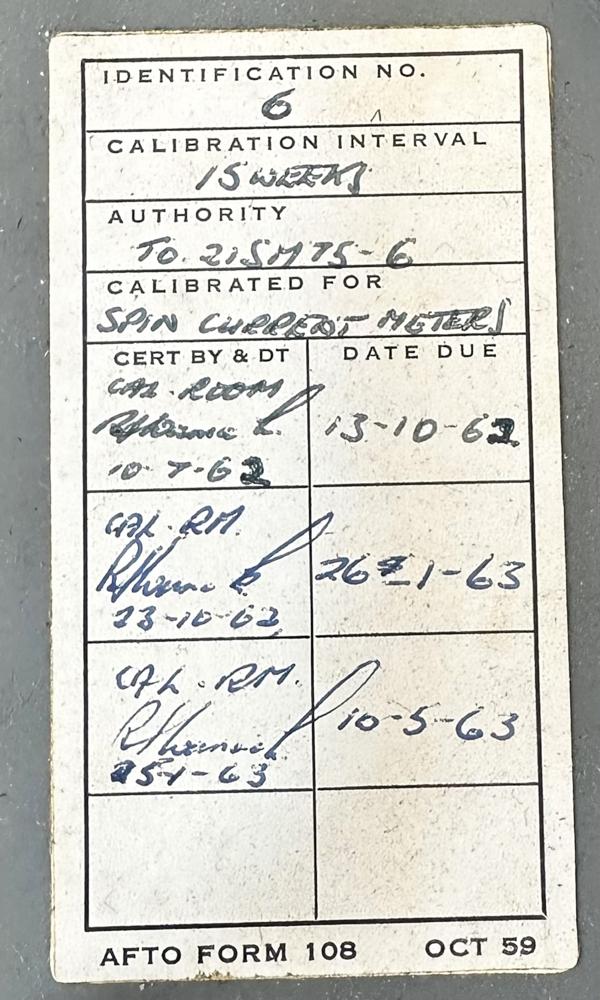 IDENTIFICATION NO.
6
CALIBRATION INTERVAL
15 WEEKS
AUTHORITY
TO. 21SM75-6
CALIBRATED FOR
SPIN CURRENT METERS
CERT BY & DT
DATE DUE
CAL. ROOM
10-7-62
13-10-62
CAL. RM.
23-10-62
26-1-63
CAL. RM.
25-1-63
10-5-63
AFTO FORM 108
OCT 59